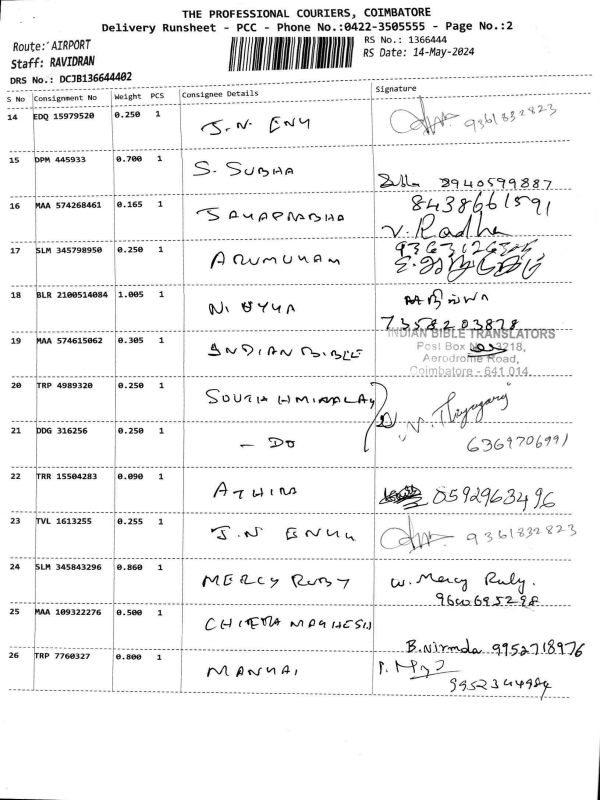 THE PROFESSIONAL COURIERS, COIMBATORE
Delivery Runsheet - PCC - Phone No.:0422-3505555 - Page No.:2
Route: AIRPORT
RS No.: 1366444
Staff: RAVIDRAN
RS Date: 14-May-2024
DRS No.: DCJB136644402
S No Consignment No Weight PCS Consignee Details Signature
14 EDQ 15979520 0.250 1 J.N. ENY 9361832823
15 DPM 445933 0.700 1 S. SUBHA Subha 8940599887
16 MAA 574268461 0.165 1 JAYAPRABHA 8438661591
V. Radha
17 SLM 345798950 0.250 1 ARUMUHAM
18 BLR 2100514084 1.005 1 7358203878
19 MAA 574615062 0.305 1 INDIAN BIBLE
INDIAN BIBLE TRANSLATORS
Post Box No. 3218,
Aerodrome Road,
Coimbatore - 641 014.
20 TRP 4989320 0.250 1 SOUTH HMIRALAY
21 DDG 316256 0.250 1 - DO 6369706991
22 TRR 15504283 0.090 1 ATHIRA 0592963496
23 TVL 1613255 0.255 1 J.N ENYU 9361832823
24 SLM 345843296 0.860 1 MERCY RUBY W. Mercy Ruby.
9600695298
25 MAA 109322276 0.500 1 CHITRA MAGHESH B. Nirmala 9952718976
26 TRP 7760327 0.800 1 MANHAI
9952344984